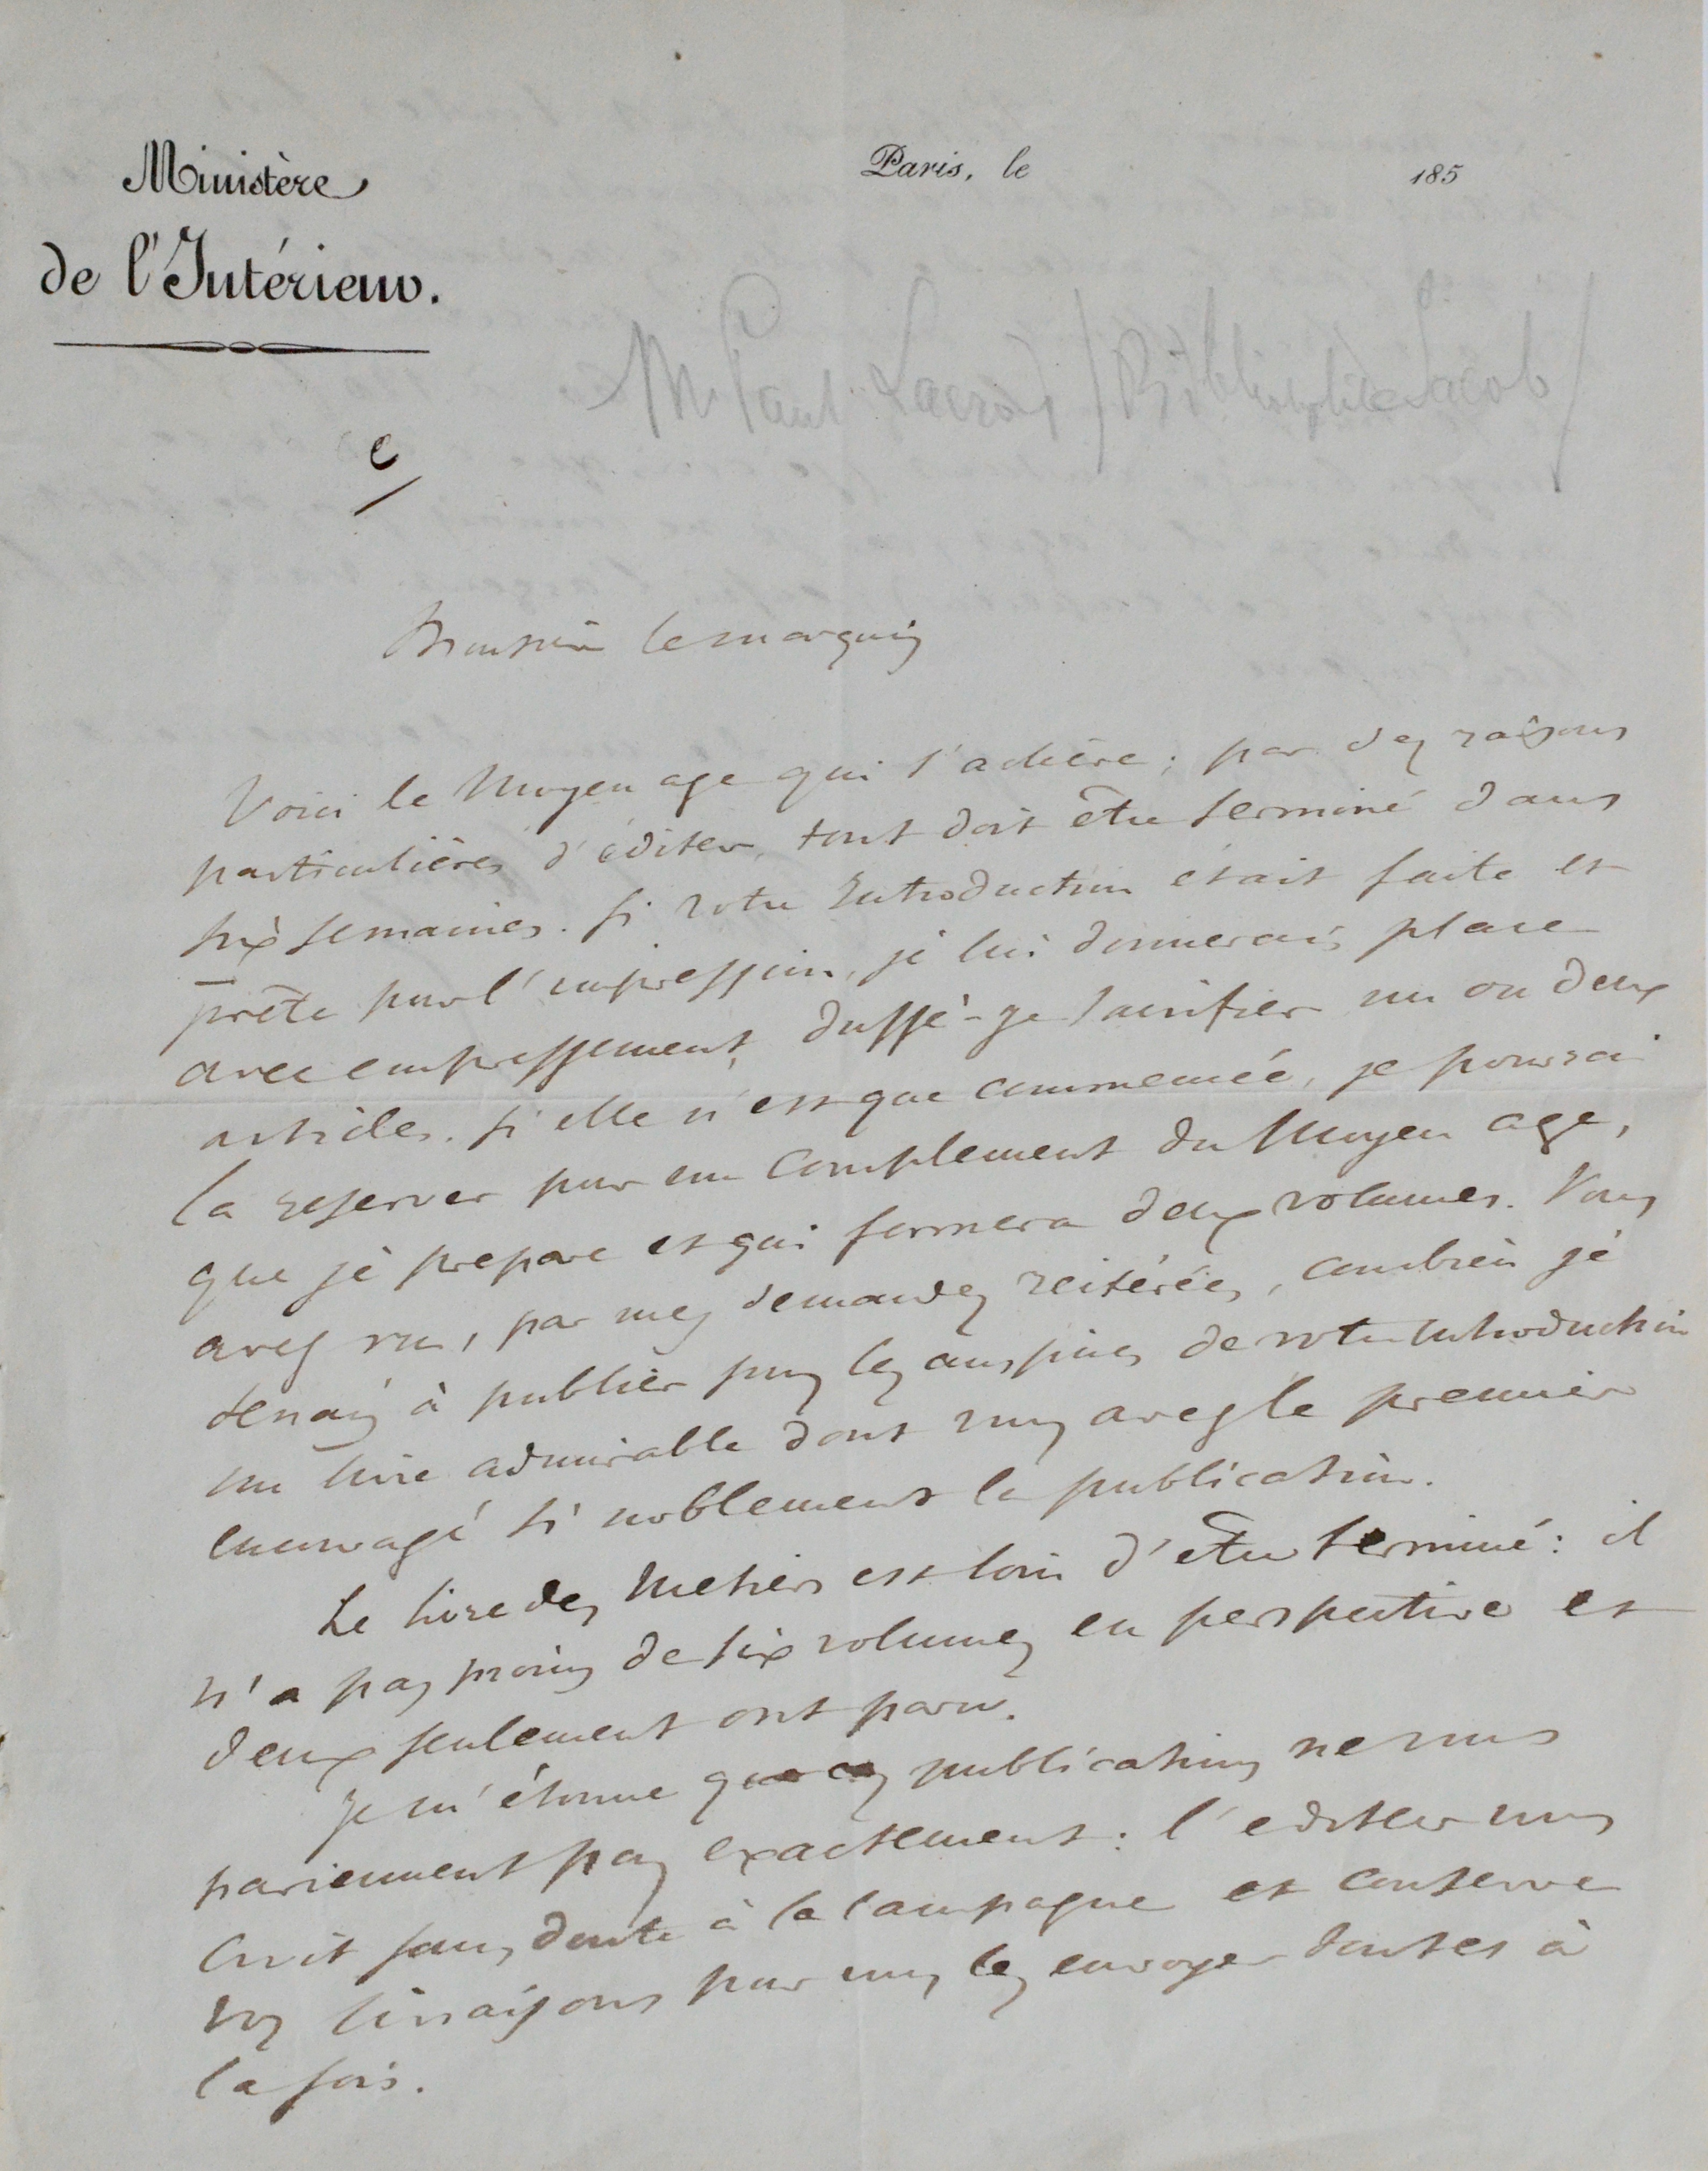 Ministère
de l'Intérieur.
Paris, le 185
Mr Paul Lacroix (Bibliophile Jacob)
C
Monsieur le marquis
Voici le Moyen age qui s'achève; par des raisons
particulières d'éditeur, tout doit être terminé dans
six semaines. Si votre Introduction était faite et
prête pour l'impression, je lui donnerais place
avec empressement, dussé-je sacrifier un ou deux
articles. Si elle n'est que commencée, je pourrai
la reserver pour un Complement du Moyen age,
que je prepare et qui formera deux volumes. Vous
avez vu, par mes demandes reitérées, combien je
tenais à publier sous les auspices de votre Introduction
un livre admirable dont vous avez le premier
encouragé si noblement la publication.
Le livre des Metiers est loin d'être terminé: il
n'a pas moins de six volumes en perspective et
deux seulement ont paru.
Je m'étonne que ces publications ne vous
parviennent pas exactement: l'editeur vous
croit sans doute à la campagne et conserve
vos livraisons pour vous les envoyer toutes à
la fois.